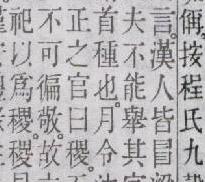 按程氏九穀
言。漢人皆冒
夫不能舉其
首種也。月令
正之官曰稷。
不可徧敬。故
祀以爲稷。稷